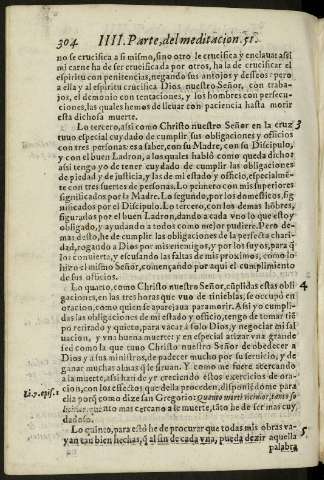 304 IIII. Parte, del meditacion. 51.
no se crucifica a si mismo, sino otro le crucifica y enclaua: assi
mi carne ha de ser crucificada por otros, ha la de crucificar el
espiritu con penitencias, negando sus antojos y desseos: pero
a ella y al espiritu crucifica Dios nuestro Señor, con traba-
jos, el demonio con tentaciones, y los hombres con persecu-
ciones, las quales hemos de lleuar con paciencia hasta morir
esta dichosa muerte.
Lo tercero, assi como Christo nuestro Señor en la cruz 3
tuuo especial cuydado de cumplir sus obligaciones y officios
con tres personas: es a saber, con su Madre, con su Discipulo,
y con el buen Ladron, a los quales habló como queda dicho:
assi tengo yo de tener cuydado de cumplir las obligaciones
de piedad y de justicia, y las de mi estado y officio, especialmē-
te con tres suertes de personas. Lo primero con mis superiores
significados por la Madre. Lo segundo, por los domesticos, sig-
nificados por el Discipulo. Lo tercero, con los demas hōbres,
figurados por el buen Ladron, dando a cada vno lo que estoy
obligado, y ayudando a todos como mejor pudiere. Pero de-
mas desto, he de cumplir las obligaciones de la perfecta chari-
dad, rogando a Dios por mis enemigos, y por los suyos, para q̃
los conuierta, y escusando las faltas de mis proximos, como lo
hizo el mismo Señor, començando por aqui el cumplimiento
de sus officios.
Lo quarto, como Christo nuestro Señor, cūplidas estas obli 4
gaciones, en las tres horas que vuo de tinieblas, se occupò en
oracion, como quien se aparejaua para morir. Assi yo cumpli-
das las obligaciones de mi estado y officio, tengo de tomar tiē-
po retirado y quieto, para vacar à solo Dios, y negociar mi sal
uacion, y vna buena muerte: y en especial atizar vna grande
sed como la que tuuo Christo nuestro Señor de obedecer a
Dios y a sus ministros, de padecer mucho por su seruicio, y de
ganar muchas almas q̃ le siruan. Y como me fuere acercando
a la muerte, assi han de yr creciendo estos exercicios de ora-
cion, con los effectos que della proceden, disponiēdome para
Li. 7. epis. 1 ella porq̃ como dize san Gregorio: Quanto
quanto mas cercano a le muerte, tāto he de ser mas cuy
dadoso.
Lo quinto, para esto he de procurar que todas mis obras va- 5
yan tan bien hechas, q̃ al fin de cada vna, pueda dezir aquella
palabra